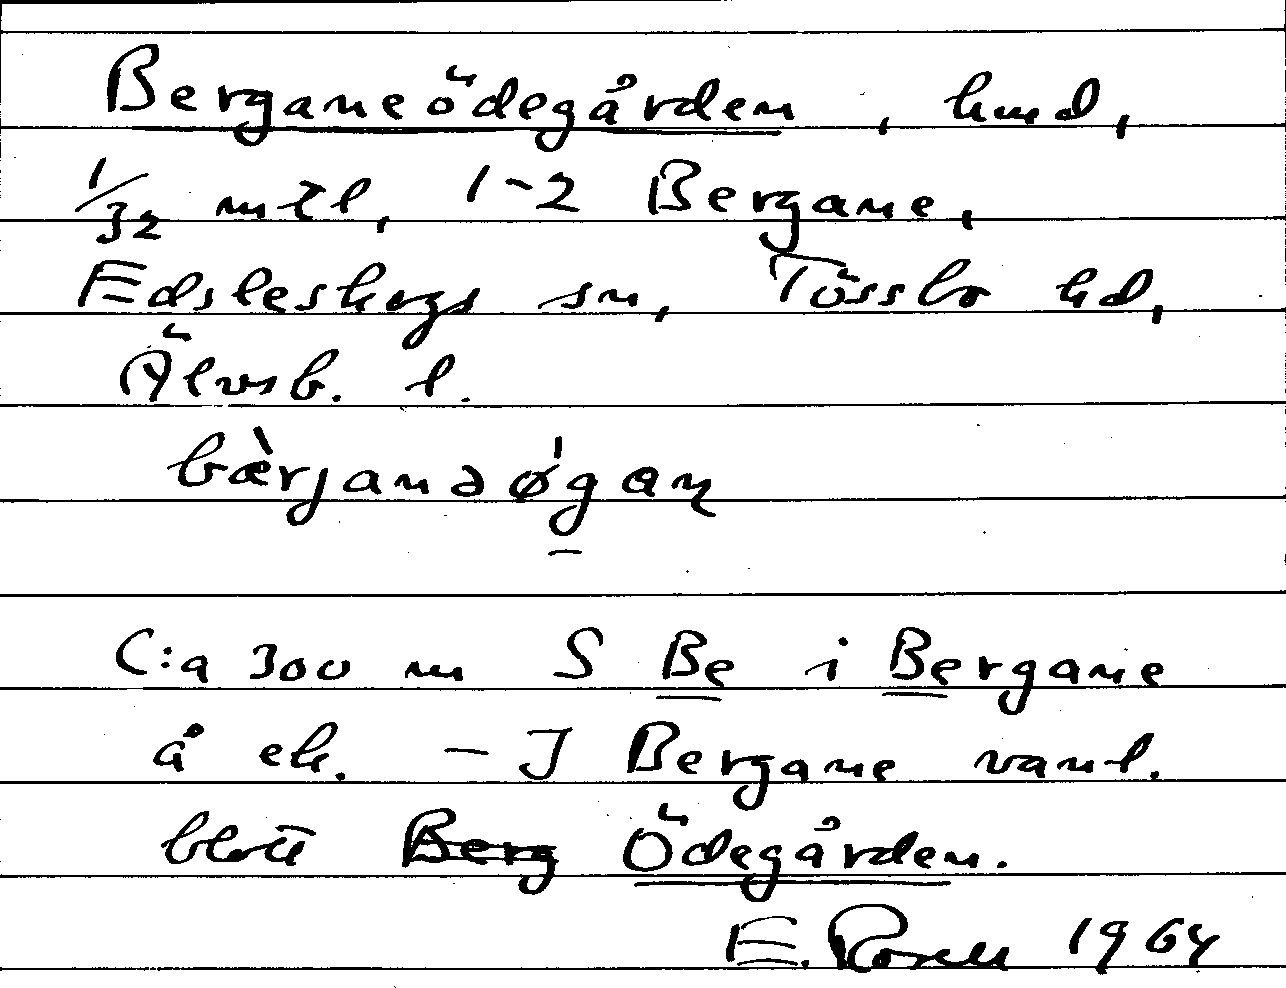 Berganeödegården, hmd,
1/32 mtl, 1-2 Bergane,
Edsleskogs sn, Tössbo hd,
Älvsb. l.
bæ̀rjanəǿgan
C:a 300 m S Be i Bergane
å ek. – I Bergane vanl.
blott Berg Ödegården.
E. Rosell 1964